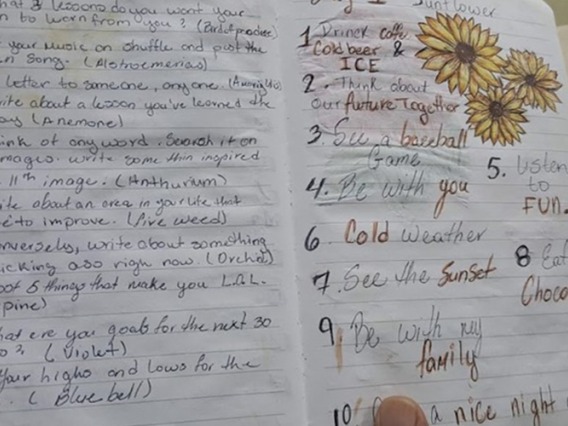 lessons do you want your
to learn from you?
your music on shuffle and post the
song. (Alstroemerias)
letter to someone, anyone.
write about a lesson you've learned the
(Anemone)
of any word. Search it on
images. write something inspired
11th image. (Anthurium)
about an area in your life that
to improve.
conversely, write about something
kicking ass right now. (Orchid)
5 things that make you L.O.L.
pine)
are you goals for the next 30
(Violet)
Your highs and lows for the
(Bluebell)
Sunflower
1. Drinck coffe
Cold beer &
ICE
2. Think about
our future Together
3. See a baseball
Game
4. Be with you
5. Listen
to
FUN.
6. Cold Weather
7. See the sunset
8 Eat
Choco
9. Be with my
family
10 a nice night